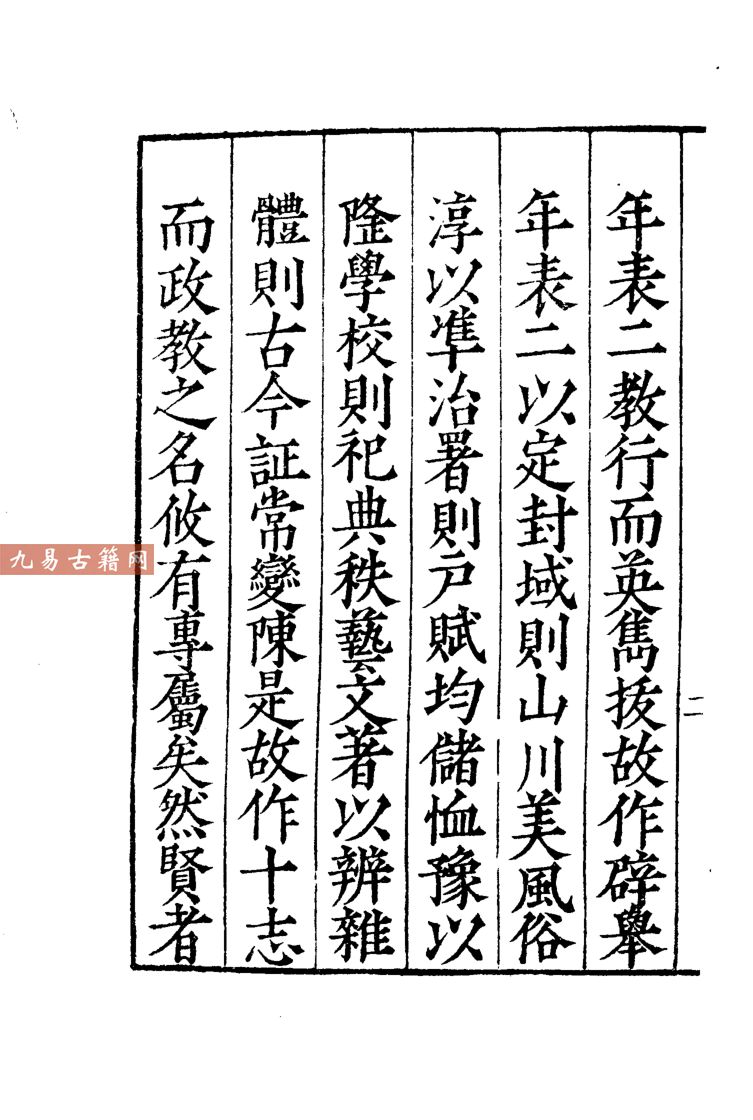 年表二教行而英雋拔故作辟舉
年表二以定封域則山川美風俗
淳以準治署則戶賦均儲恤豫以
隆學校則祀典秩藝文著以辨雜
體則古今証常變陳是故作十志
而政教之名攸有專屬矣然賢者
二
九易古籍网